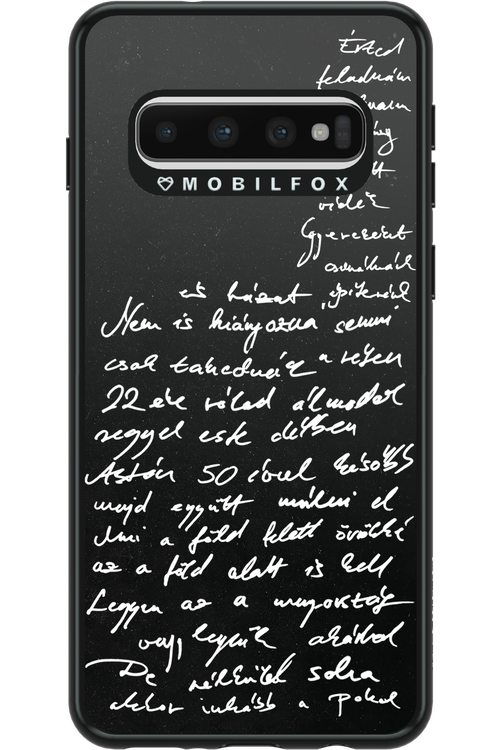 Érted
feladnám
MOBILFOX
vidék
Gyerekeket
csinálnánk
és házat építenénk
Nem is hiányozna semmi
csak takednánk a réten
22 éve rólad álmodok
reggel este délben
Aztán 50 évvel később
majd együtt múlni el
Ami a föld felett örökké
az a föld alatt is kell
Legyen az a mennyország
vagy legyünk akárhol
De nélküled soha
akkor inkább a pokol